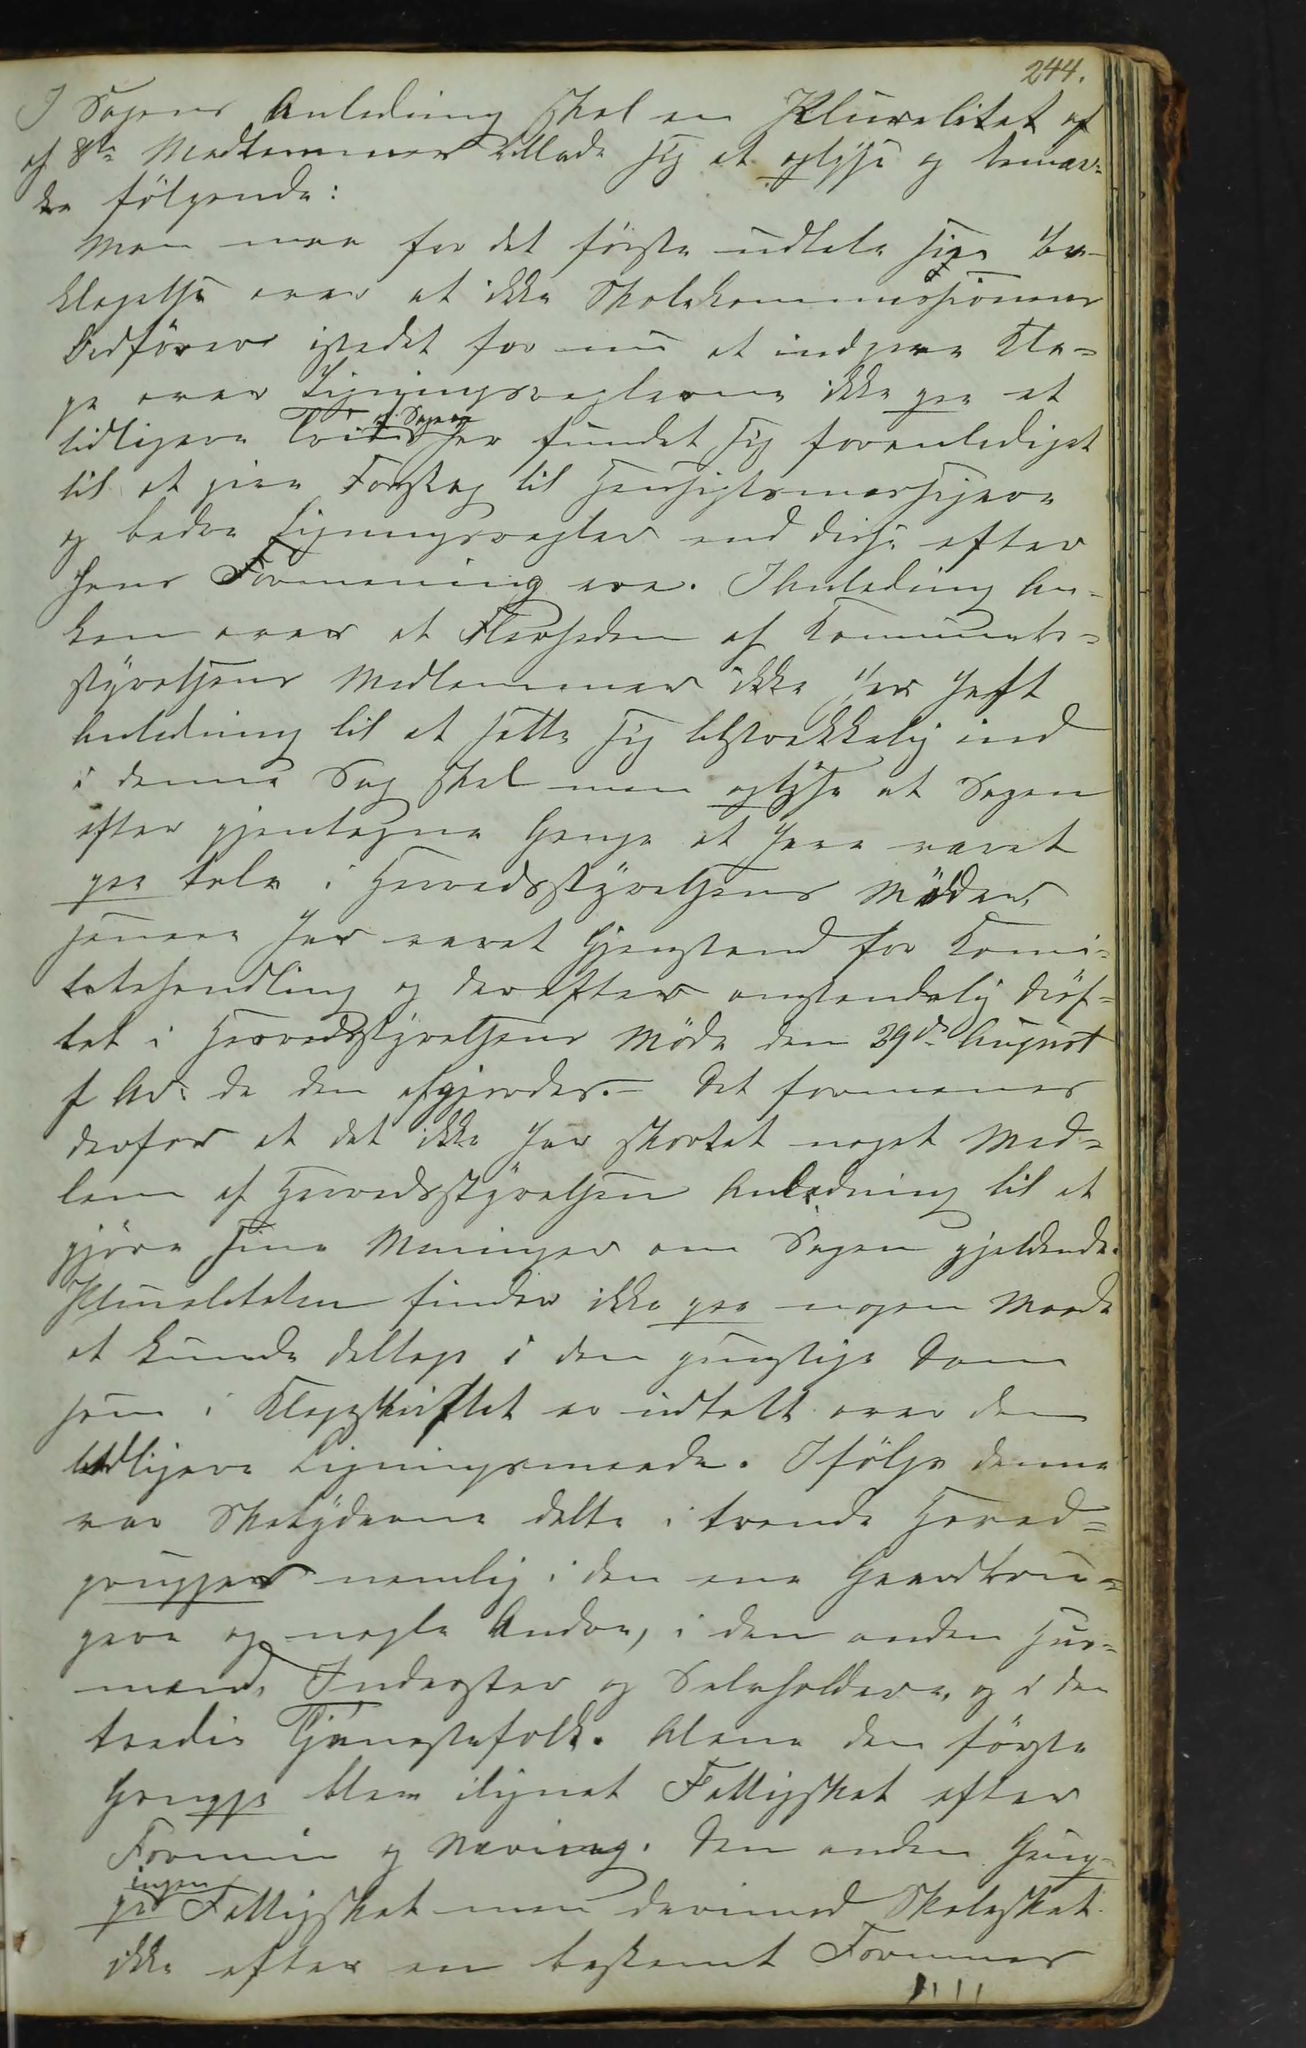 244.
I Sagens Anledning skal en Pluralitet af
af 8te Medlemmer tillade sig at oplyse og bemær-
ke følgende:
Man maa for det første udtale sin Be-
klagelse over at ikke Skolekommissionens
Ordfører istedet for nu at indgive Kla-
ge over Ligningsreglerne ikke paa et
tidligere Trin af Sagen har fundet sig foranlediget
til at give Forslag til hensigtsmæssigere
og bedre Ligningsregler end disse efter
hans Formening ere. I Anledning An-
ken over at Flerheden af Kommune-
styrelsens Medlemmer ikke har haft
Anledning til at sætte sig tilstrækkelig ind
i denne Sag skal man oplyse at Sagen
efter gjentagne Gange at have været
paa tale i Herredsstyrelsens Møder,
senere har været Gjenstand for Komi-
tebehandling og derefter omstændelig drøf-
tet i Herredsstyrelsens Møde den 29de August
f. A. da den afgjordes. Det formenes
derfor at det ikke har skortet noget Med-
lem af Herredsstyrelsen Anledning til at
gjøre sine Meninger om Sagen gjeldende.
Pluraliteten finder ikke paa nogen Maade
at kunde deltage i den gunstige Dom
som i Klageskriftet er udtalt over den
tidligere Ligningsmaade. Ifølge denne
var Skatyderne delte i trende Hoved-
grupper nemlig i den ene Gaardbru-
gere og nogle Andre, i den anden Hus-
mænd, Inderster og Selvholdere, og i den
tredie Tjenestefolk. Alene den første
Gruppe blev ilignet Fattigskat efter
Formue og Næring. Den anden Grup-
pe ingen Fattigskat men derimod Skoleskat
ikke efter en bestemt Formues